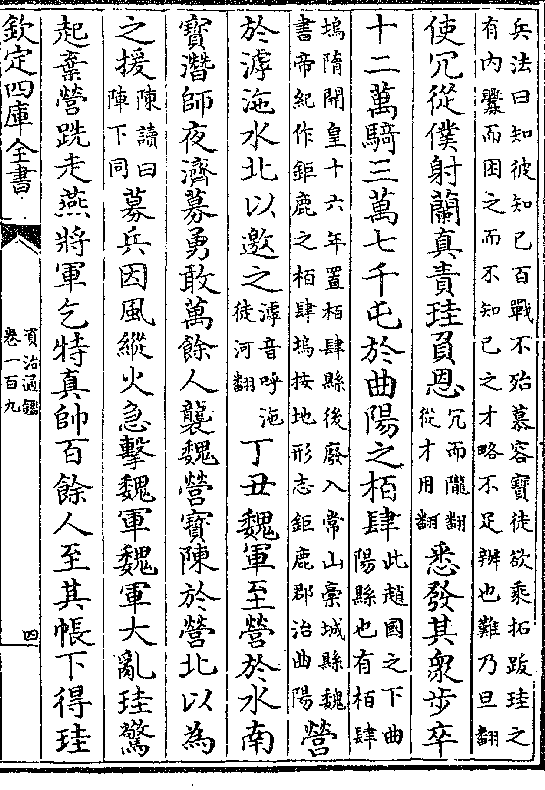 兵法曰知彼知己百戰不殆慕容寶徒欲乘拓跋珪之
有内釁而困之而不知己之才略不足辨也難乃旦翻
使冗從僕射蘭真責珪負恩冗而隴翻
從才用翻悉發其衆步卒
十二萬騎三萬七千屯於曲陽之栢肆此趙國之下曲
陽縣也有栢肆
塢隋開皇十六年置栢肆縣後廢入常山槀城縣魏
書帝紀作鉅鹿之栢肆塢按地形志鉅鹿郡治曲陽營
於滹沲水北以邀之滹音呼沲
徒河翻丁丑魏軍至營於水南
寶潛師夜濟募勇敢萬餘人襲魏營寶陳於營北以為
之援陳讀曰
陣下同募兵因風縱火急擊魏軍魏軍大亂珪驚
起棄營跣走燕將軍乞特真帥百餘人至其帳下得珪
欽定四庫全書
資治通鑑
卷一百九
四